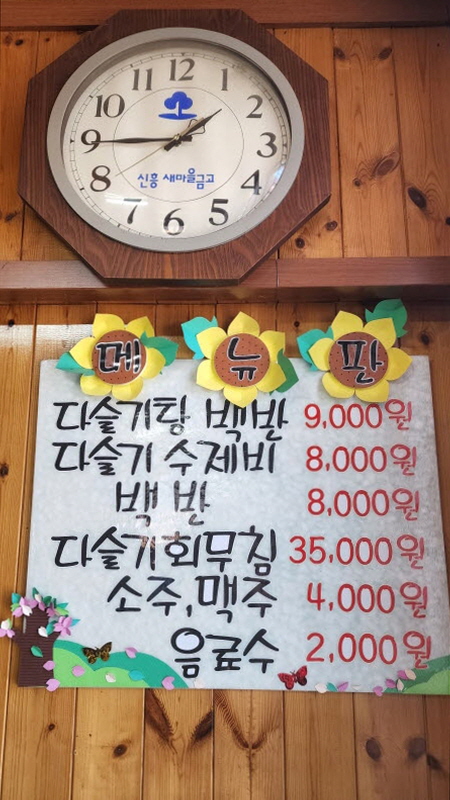 12
1
2
3
4
5
6
7
8
9
10
11
신흥 새마을금고
메뉴판
다슬기탕 백반 9,000원
다슬기 수제비 8,000원
백반 8,000원
다슬기회무침 35,000원
소주,맥주 4,000원
음료수 2,000원